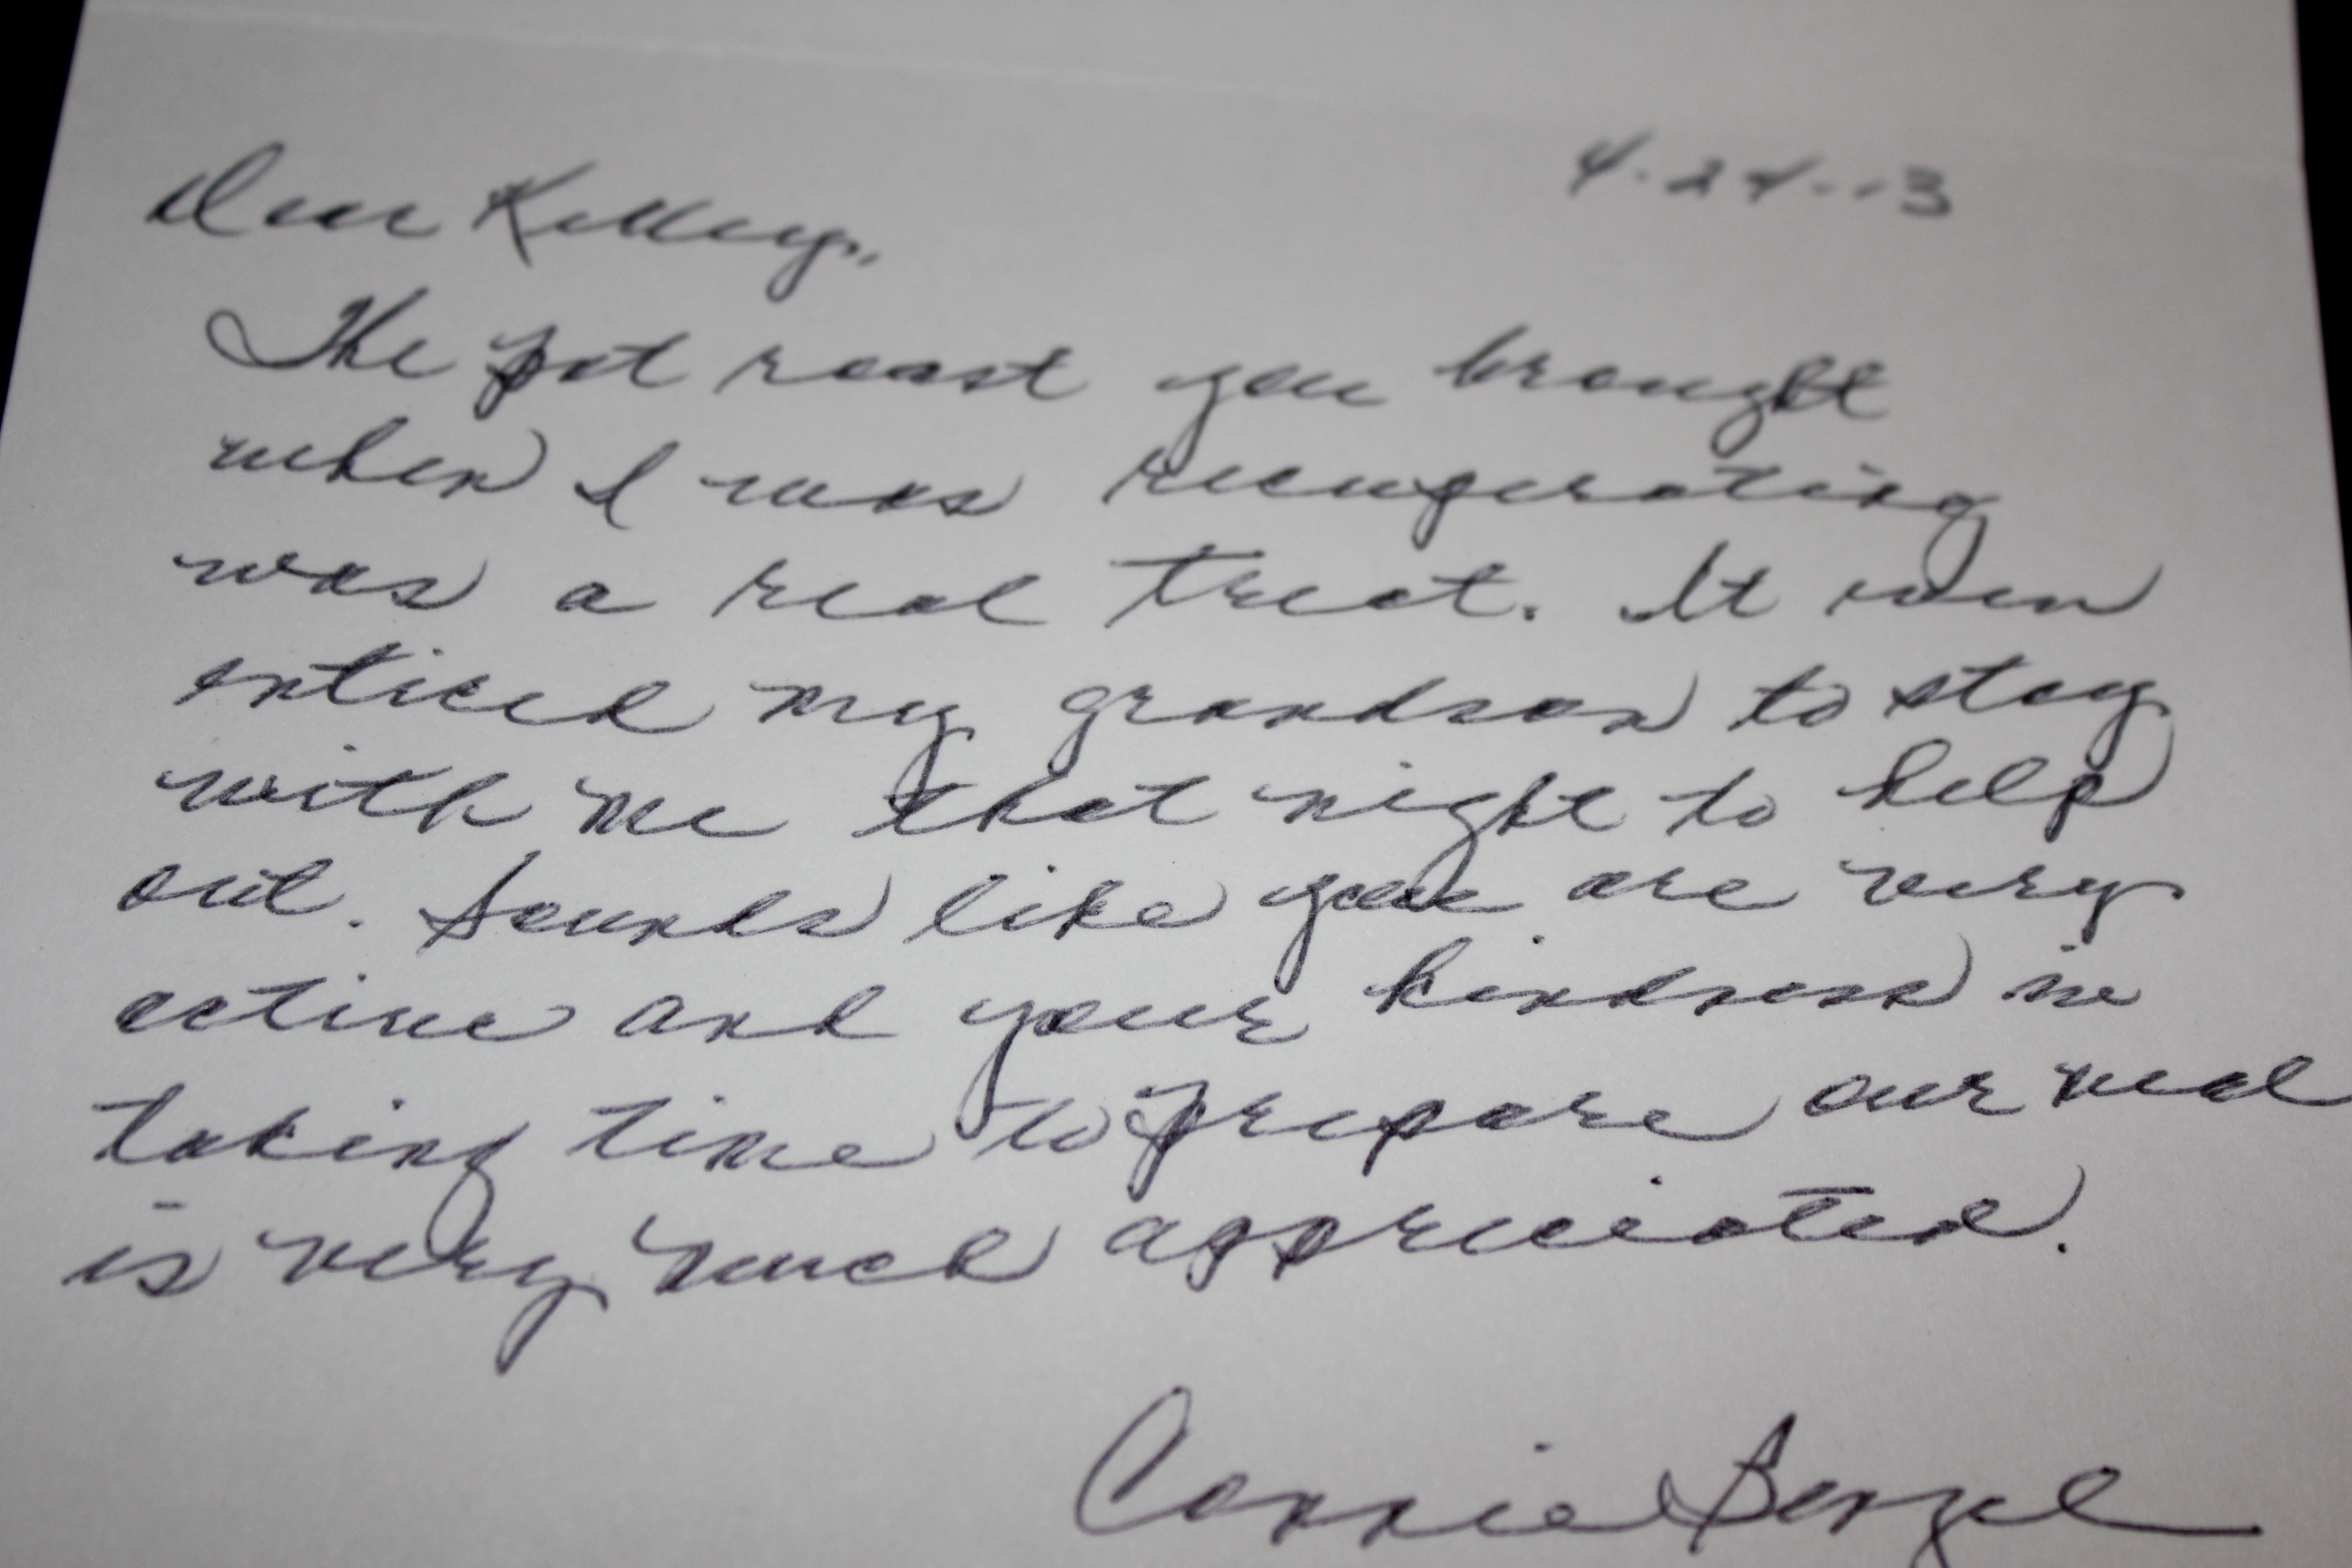 4-24-13
Dear Kelley,
The pot roast you brought
when I was recuperating
was a real treat. It even
enticed my grandson to stay
with me that night to help
out. Sounds like you are very
active and your kindness in
taking time to prepare our meal
is very much appreciated.
Connie